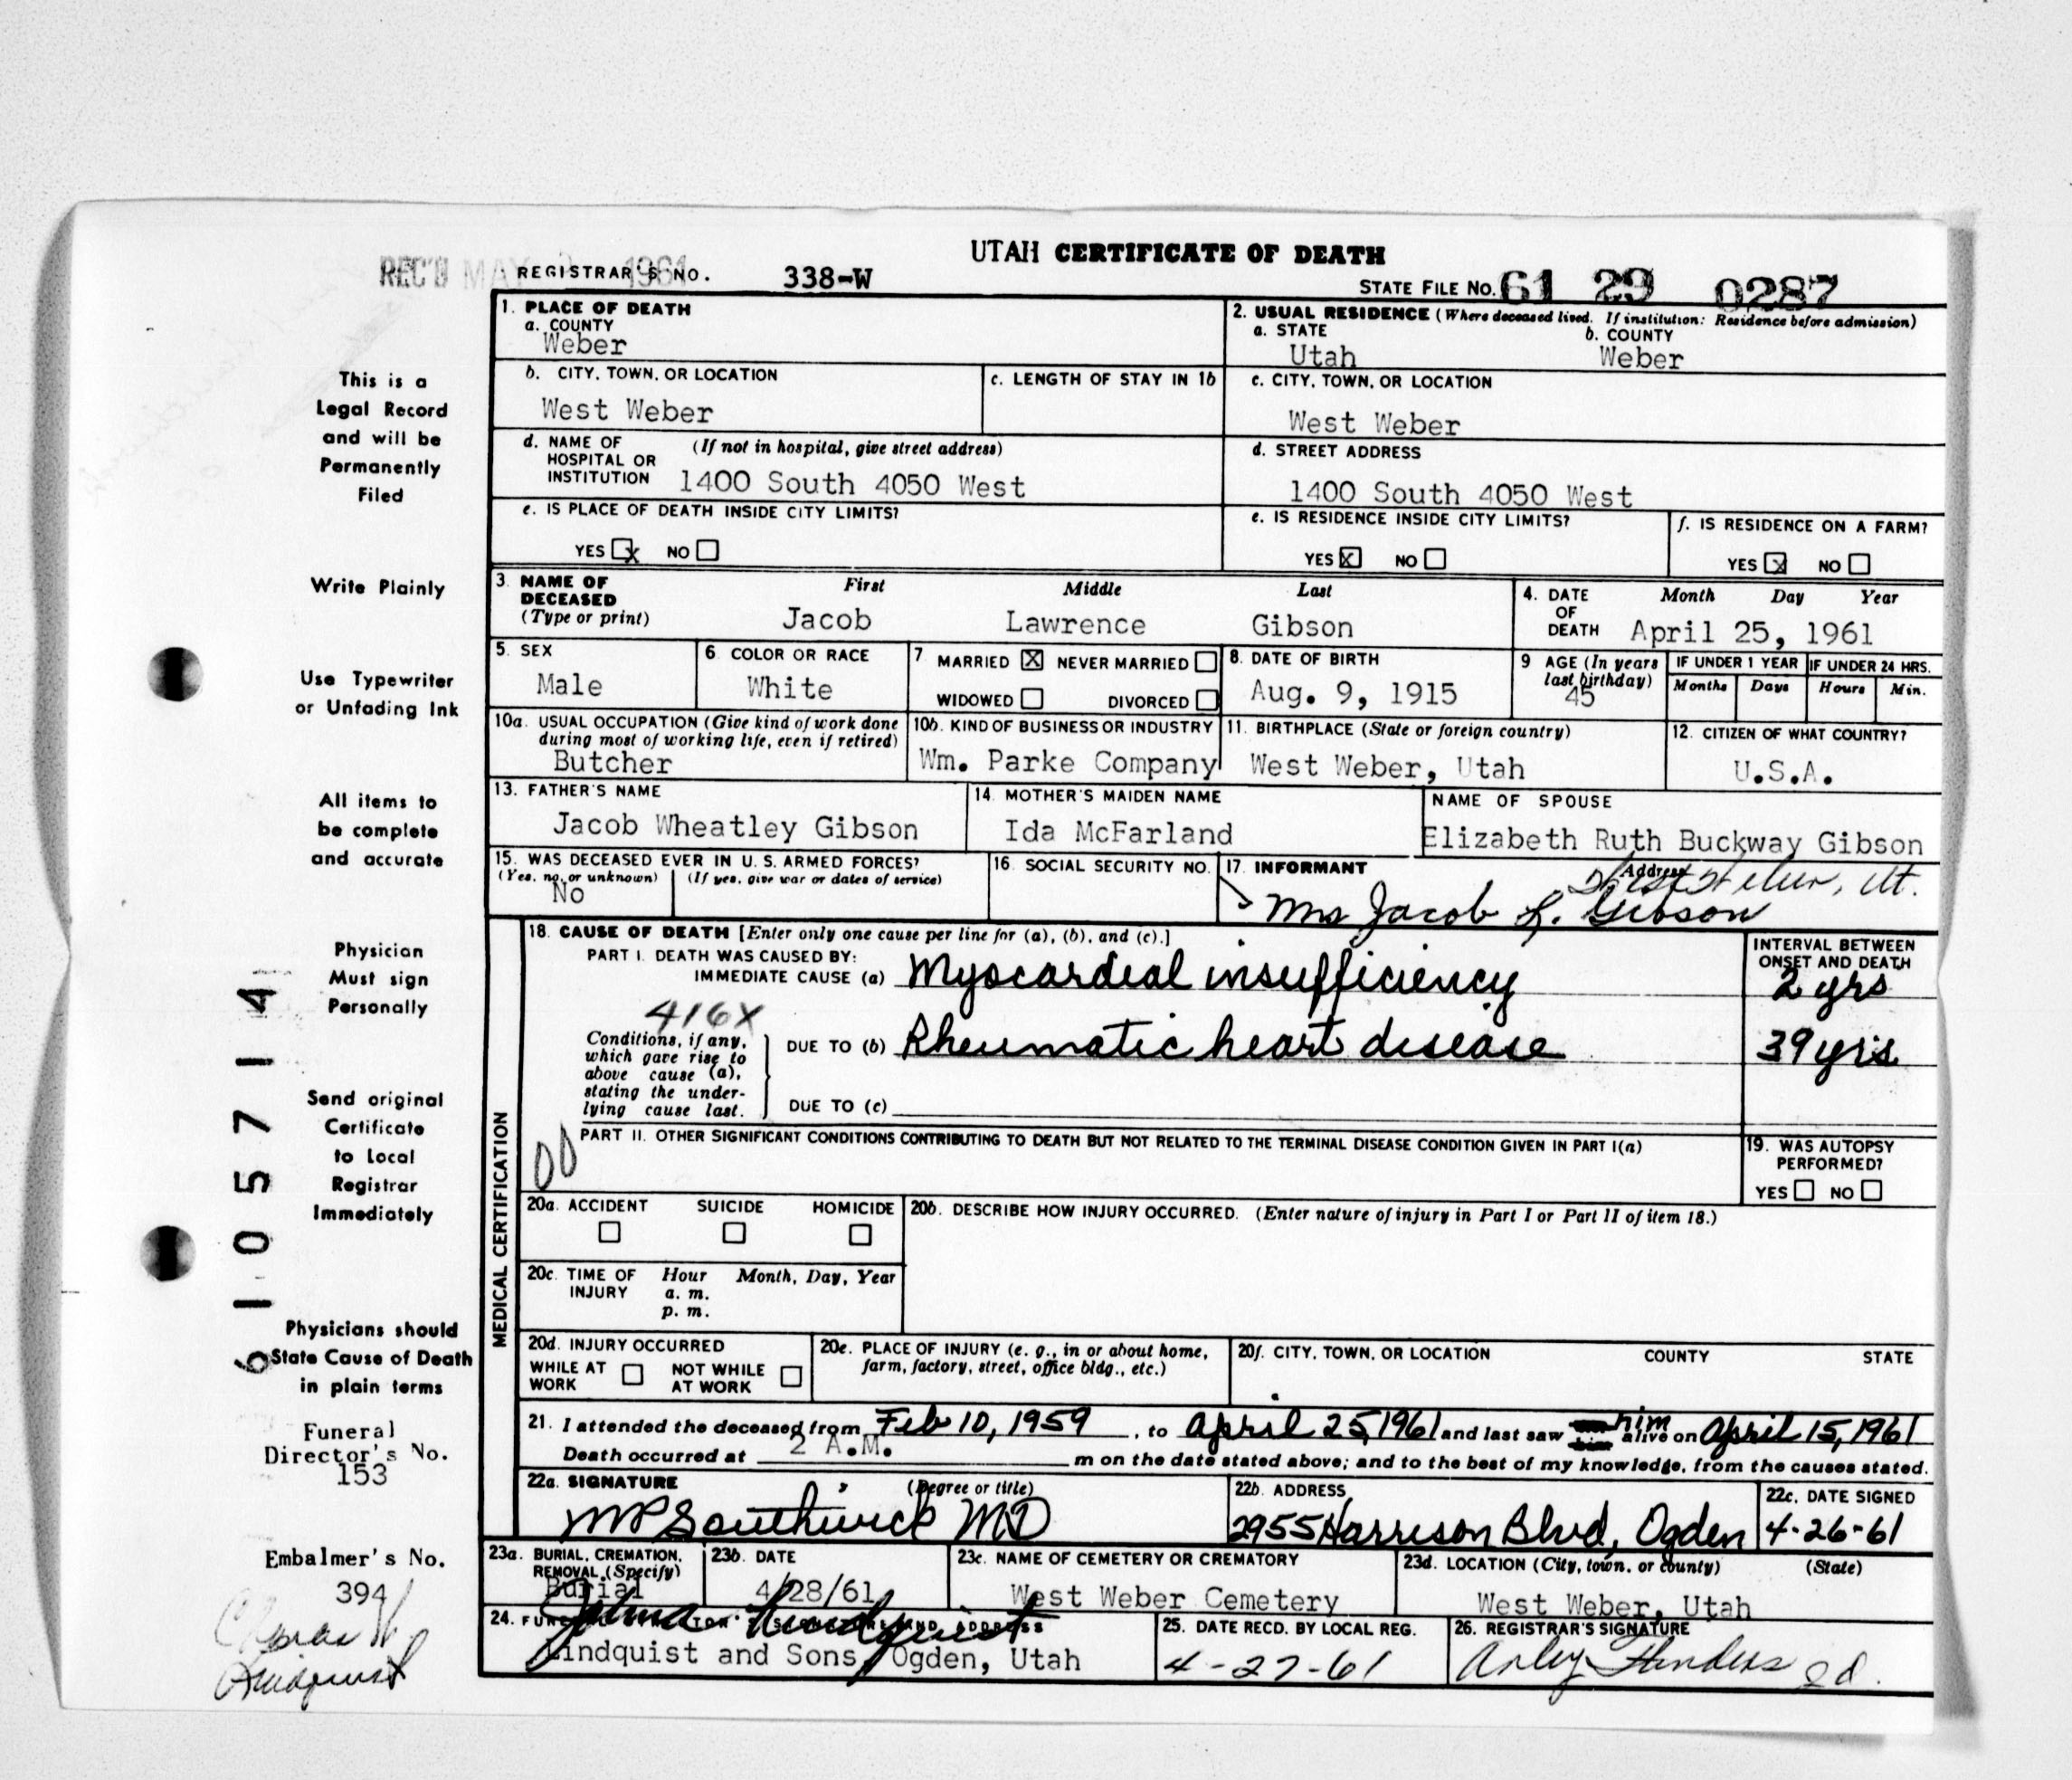 UTAH CERTIFICATE OF DEATH
REC'D MAY 1961 REGISTRAR'S NO. 338-W
STATE FILE No. 61 29 0287
1. PLACE OF DEATH
a. COUNTY
Weber
2. USUAL RESIDENCE (Where deceased lived. If institution: Residence before admission)
a. STATE b. COUNTY
Utah Weber
b. CITY, TOWN, OR LOCATION c. LENGTH OF STAY IN 1b
West Weber
c. CITY, TOWN, OR LOCATION
West Weber
d. NAME OF HOSPITAL OR INSTITUTION (If not in hospital, give street address)
1400 South 4050 West
d. STREET ADDRESS
1400 South 4050 West
e. IS PLACE OF DEATH INSIDE CITY LIMITS?
YES X NO
e. IS RESIDENCE INSIDE CITY LIMITS?
YES X NO
f. IS RESIDENCE ON A FARM?
YES X NO
3. NAME OF DECEASED (Type or print) First Middle Last
Jacob Lawrence Gibson
4. DATE OF DEATH Month Day Year
April 25, 1961
5. SEX
Male
6. COLOR OR RACE
White
7. MARRIED X NEVER MARRIED
WIDOWED DIVORCED
8. DATE OF BIRTH
Aug. 9, 1915
9 AGE (In years last birthday)
45
IF UNDER 1 YEAR IF UNDER 24 HRS.
Months Days Hours Min.
10a. USUAL OCCUPATION (Give kind of work done during most of working life, even if retired)
Butcher
10b. KIND OF BUSINESS OR INDUSTRY
Wm. Parke Company
11. BIRTHPLACE (State or foreign country)
West Weber, Utah
12. CITIZEN OF WHAT COUNTRY?
U.S.A.
13. FATHER'S NAME
Jacob Wheatley Gibson
14. MOTHER'S MAIDEN NAME
Ida McFarland
NAME OF SPOUSE
Elizabeth Ruth Buckway Gibson
15. WAS DECEASED EVER IN U. S. ARMED FORCES?
(Yes, no, or unknown) (If yes, give war or dates of service)
No
16. SOCIAL SECURITY NO.
17. INFORMANT Address
West Weber, Ut.
Mrs Jacob L. Gibson
MEDICAL CERTIFICATION
18. CAUSE OF DEATH [Enter only one cause per line for (a), (b), and (c).]
INTERVAL BETWEEN ONSET AND DEATH
PART I. DEATH WAS CAUSED BY:
IMMEDIATE CAUSE (a) Myocardial insufficiency 2 yrs
416X
Conditions, if any, which gave rise to above cause (a), stating the underlying cause last.
DUE TO (b) Rheumatic heart disease 39 yrs
DUE TO (c)
PART II. OTHER SIGNIFICANT CONDITIONS CONTRIBUTING TO DEATH BUT NOT RELATED TO THE TERMINAL DISEASE CONDITION GIVEN IN PART I(a)
00
19. WAS AUTOPSY PERFORMED?
YES NO
20a. ACCIDENT SUICIDE HOMICIDE
20b. DESCRIBE HOW INJURY OCCURRED. (Enter nature of injury in Part I or Part II of item 18.)
20c. TIME OF INJURY Hour Month, Day, Year
a. m.
p. m.
20d. INJURY OCCURRED
WHILE AT WORK NOT WHILE AT WORK
20e. PLACE OF INJURY (e. g., in or about home, farm, factory, street, office bldg., etc.)
20f. CITY, TOWN, OR LOCATION COUNTY STATE
21. I attended the deceased from Feb 10, 1959, to April 25, 1961 and last saw him alive on April 15, 1961
Death occurred at 2 A.M. m on the date stated above; and to the best of my knowledge, from the causes stated.
22a. SIGNATURE (Degree or title)
MP Southwick MD
22b. ADDRESS
2955 Harrison Blvd, Ogden
22c. DATE SIGNED
4-26-61
23a. BURIAL, CREMATION, REMOVAL (Specify)
Burial
23b. DATE
4/28/61
23c. NAME OF CEMETERY OR CREMATORY
West Weber Cemetery
23d. LOCATION (City, town, or county) (State)
West Weber, Utah
24. FUNERAL DIRECTOR'S SIGNATURE AND ADDRESS
Lindquist
Lindquist and Sons, Ogden, Utah
25. DATE RECD. BY LOCAL REG.
4-27-61
26. REGISTRAR'S SIGNATURE
This is a
Legal Record
and will be
Permanently
Filed
Write Plainly
Use Typewriter
or Unfading Ink
All items to
be complete
and accurate
Physician
Must sign
Personally
Send original
Certificate
to Local
Registrar
Immediately
Physicians should
State Cause of Death
in plain terms
Funeral
Director's No.
153
Embalmer's No.
394
Lindquist
61057 14